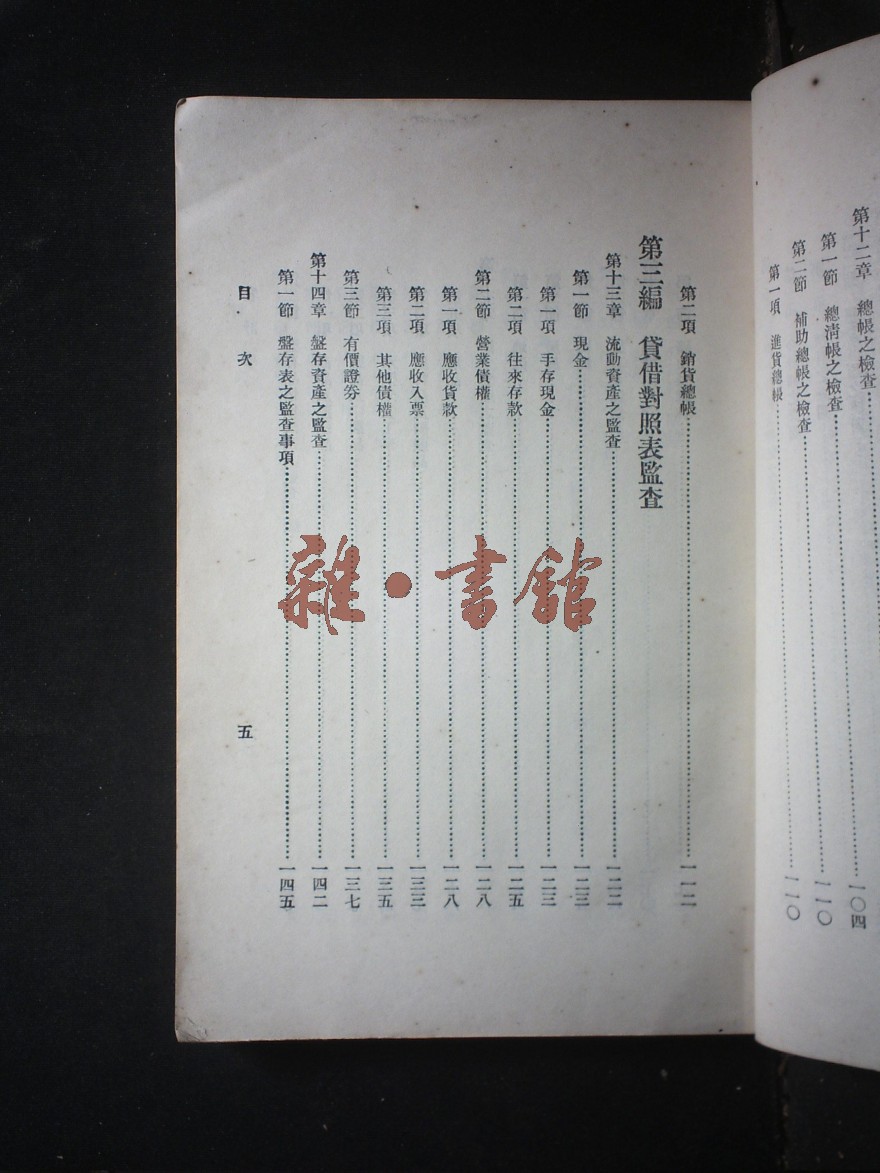 第十二章　總帳之檢查……一〇四
第一節　總清帳之檢查……一一〇
第二節　補助總帳之檢查……一一〇
第一項　進貨總帳……一一〇
第二項　銷貨總帳……一一二
第三編　貸借對照表監查
第十三章　流動資產之監查……一二二
第一節　現金……一二三
第一項　手存現金……一二三
第二項　往來存款……一二五
第二節　營業債權……一二八
第一項　應收貨款……一二八
第二項　應收入票……一三三
第三項　其他債權……一三五
第三節　有價證券……一三七
第十四章　盤存資產之監查……一四二
第一節　盤存表之監查事項……一四五
目次
五
雜·書館